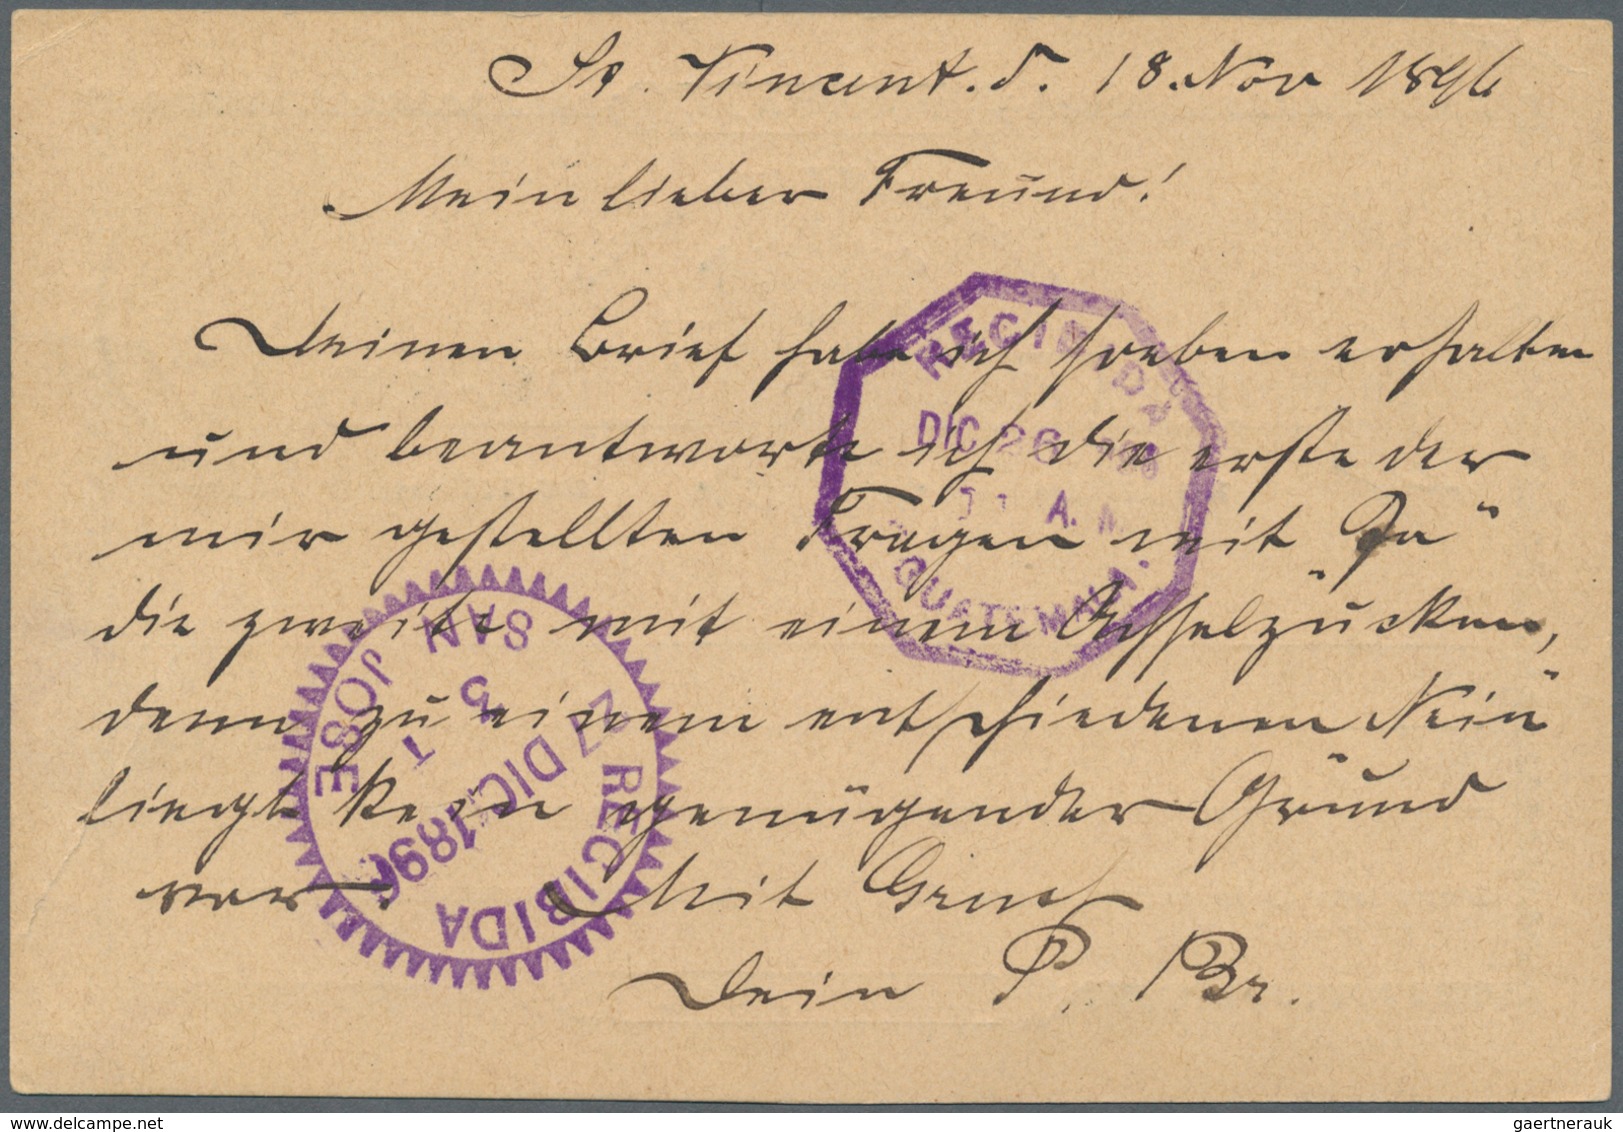 St. Vincent. d. 18. Nov 1896
Mein lieber Freund!
Deinen Brief habe ich soeben erhalten
und beantworte ich die erste der
mir gestellten Fragen mit Ja"
die zweite mit einem Achselzücken,
denn zu einem entschiedenen Nein"
liegt kein genügender Grund
vor. Mit Gruss
Dein P. Br.
RECIBIDA
DIC 26
11 A.M.
GUATEMALA.
SAN JOSE
5
1
27 DIC. 1896
RECIBIDA
gaertnerauk